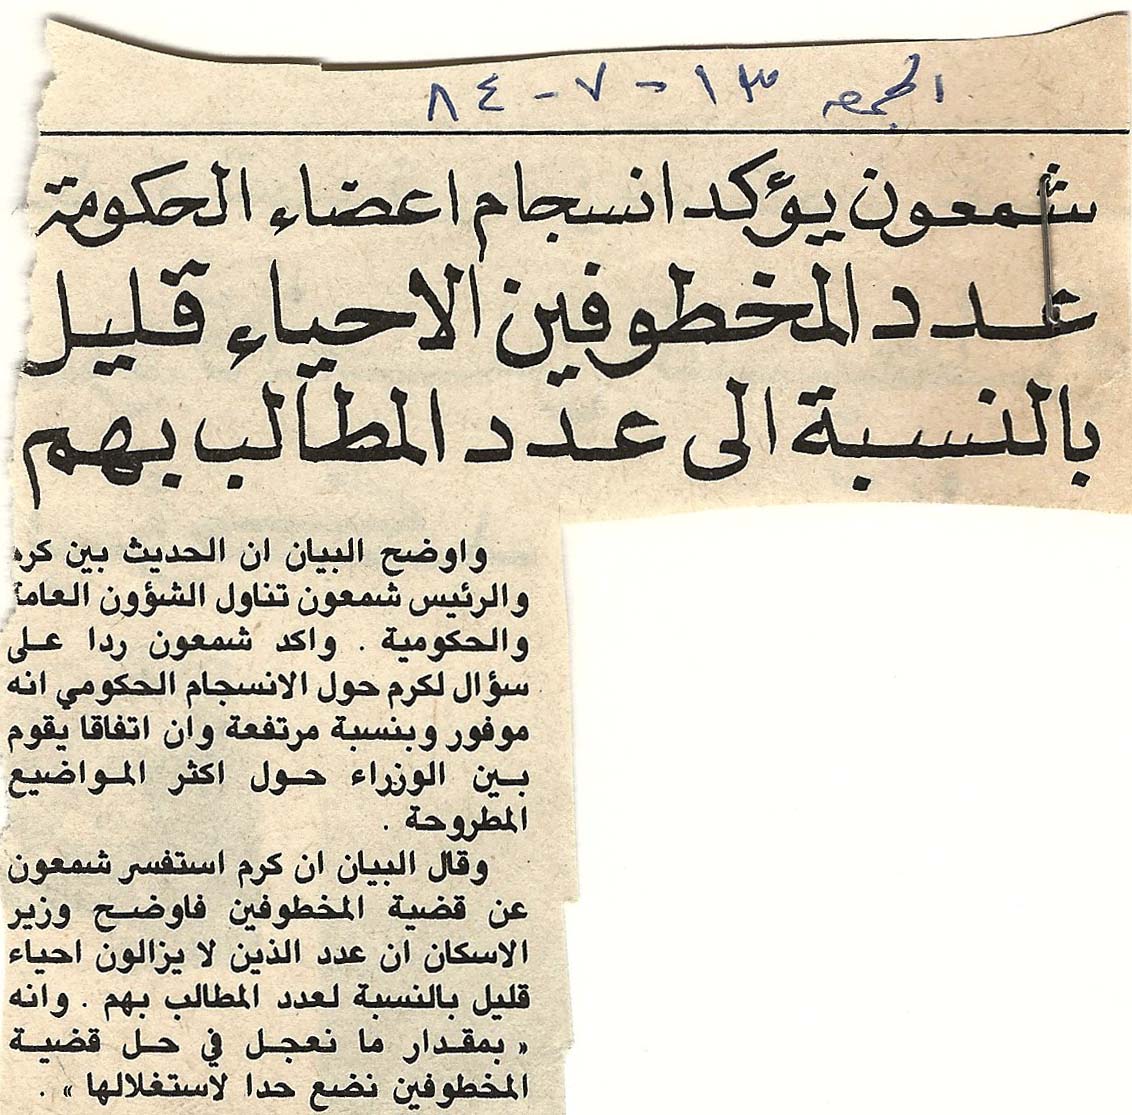 الجمعه ١٣ - ٧ - ٨٤
شمعون يؤكد انسجام اعضاء الحكومة
عدد المخطوفين الاحياء قليل
بالنسبة الى عدد المطالب بهم
واوضح البيان ان الحديث بين كرم
والرئيس شمعون تناول الشؤون العامة
والحكومية . واكد شمعون ردا على
سؤال لكرم حول الانسجام الحكومي انه
موفور وبنسبة مرتفعة وان اتفاقا يقوم
بين الوزراء حول اكثر المواضيع
المطروحة .
وقال البيان ان كرم استفسر شمعون
عن قضية المخطوفين فاوضح وزير
الاسكان ان عدد الذين لا يزالون احياء
قليل بالنسبة لعدد المطالب بهم . وانه
« بمقدار ما نعجل في حل قضية
المخطوفين نضع حدا لاستغلالها » .